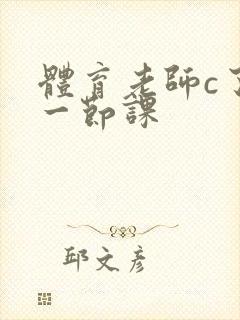 體育老師c了
一節課
邱文彥